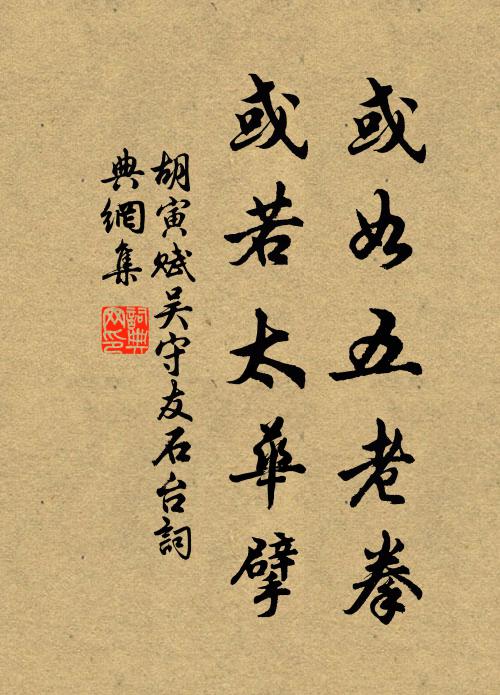 或如五老拳
或若太華擘
胡寅賦吴守友石台詞
典網集
詞典
网印